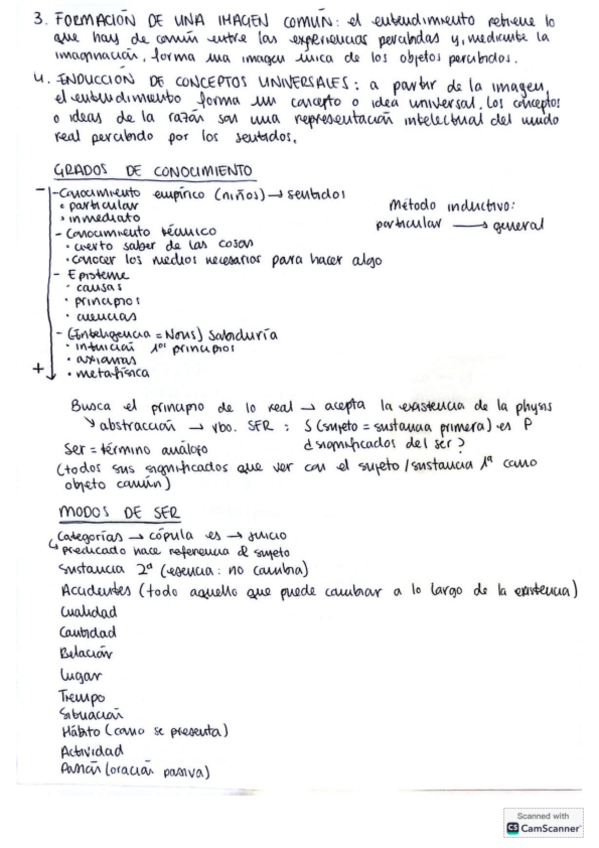 3. FORMACIÓN DE UNA IMAGEN COMÚN: el entendimiento retiene lo
que hay de común entre las experiencias percibidas y, mediante la
imaginación, forma una imagen única de los objetos percibidos.
4. INDUCCIÓN DE CONCEPTOS UNIVERSALES: a partir de la imagen,
el entendimiento forma un concepto o idea universal. Los conceptos
o ideas de la razón son una representación intelectual del mundo
real percibido por los sentidos.
GRADOS DE CONOCIMIENTO
- Conocimiento empírico (niños) → sentidos
• particular
• inmediato
Método inductivo:
particular → general
- Conocimiento técnico
• cierto saber de las cosas
• conocer los medios necesarios para hacer algo
- Episteme
• causas
• principios
• ciencias
- (Inteligencia = Nous) Sabiduría
• intuición 1os principios
• axiomas
+ • metafísica
Busca el principio de lo real → acepta la existencia de la physis
↘ abstracción → vbo. SER : S (sujeto = sustancia primera) es P
Ser = término análogo ¿significados del ser?
(todos sus significados que ver con el sujeto/sustancia 1ª como
objeto común)
MODOS DE SER
Categorías → cópula es → juicio
↳ Predicado hace referencia al sujeto
Sustancia 2ª (esencia: no cambia)
Accidentes (todo aquello que puede cambiar a lo largo de la existencia)
Cualidad
Cantidad
Relación
Lugar
Tiempo
Situación
Hábito (como se presenta)
Actividad
Pasión (oración pasiva)
Scanned with
CS CamScanner